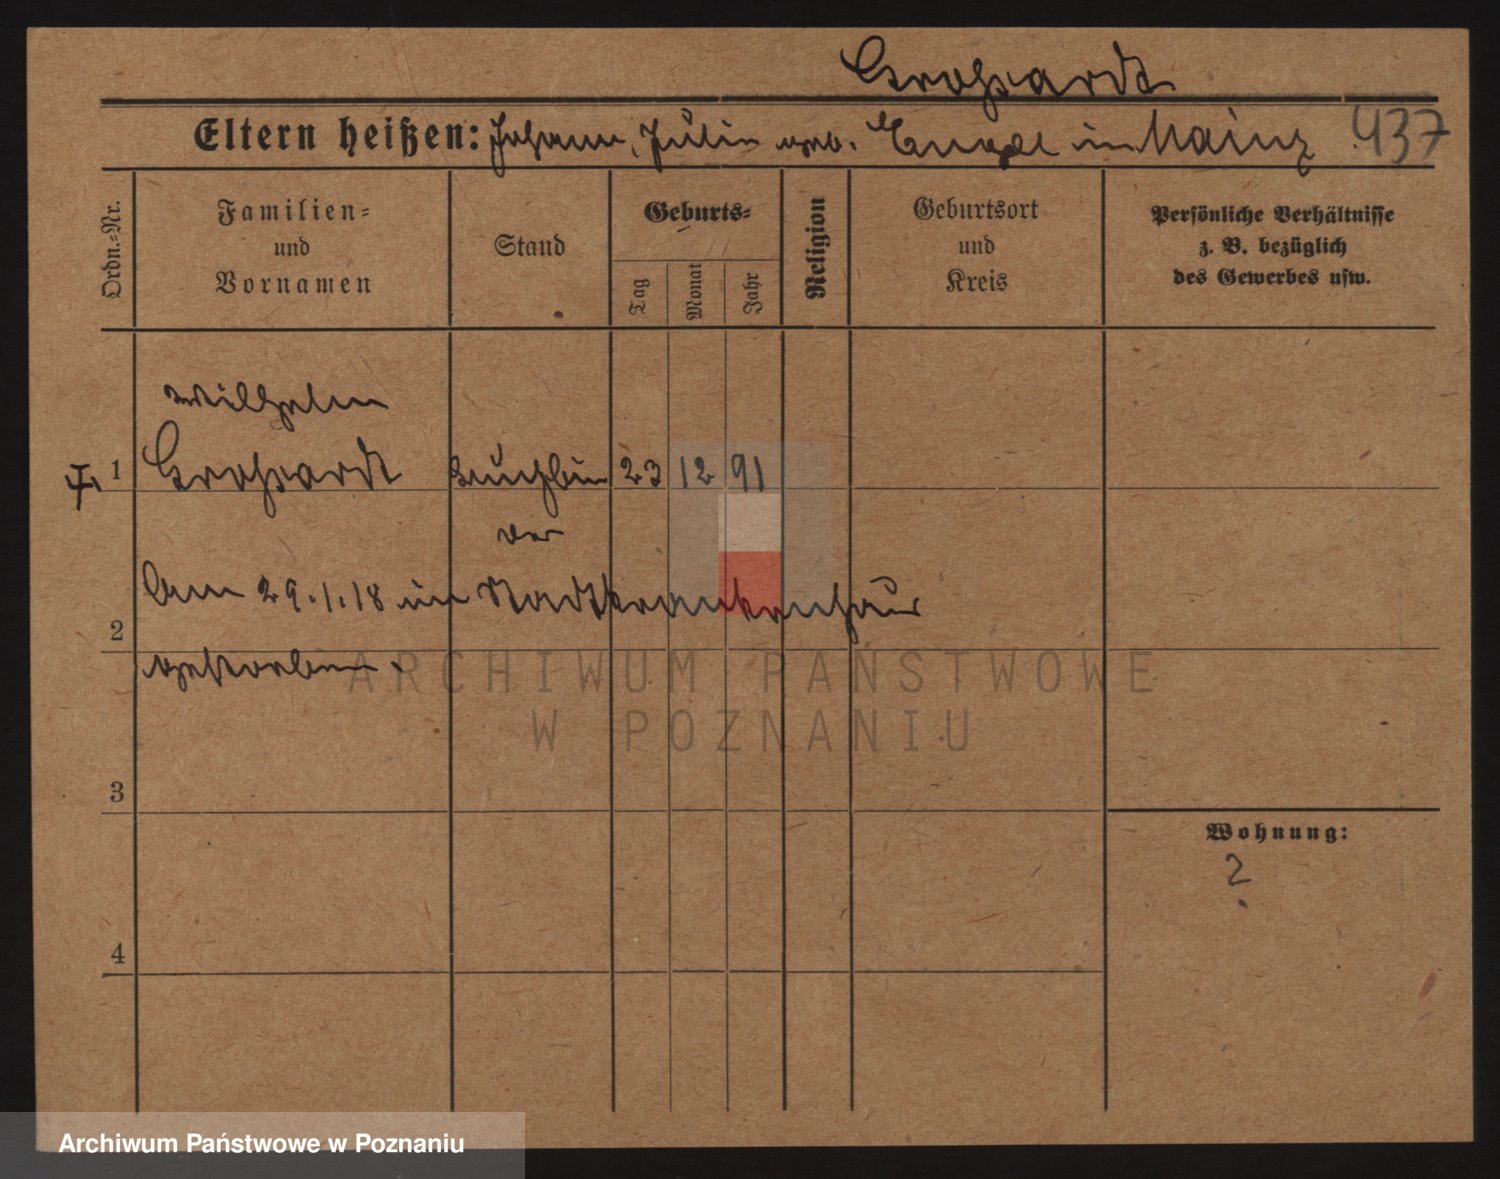 Großardt
Eltern heißen: Johann, Julie geb. Engel in Mainz 437
Ordn.-Nr.
Familien-
und
Vornamen
Stand
Geburts-
Tag
Monat
Jahr
Religion
Geburtsort
und
Kreis
Persönliche Verhältnisse
z. B. bezüglich
des Gewerbes usw.
Wilhelm
1 Großardt Buchbin 23 12 91
der
Am 29.1.18 im Stadtkrankenhaus
2
gestorben.
ARCHIWUM PAŃSTWOWE
W POZNANIU
3
Wohnung:
?
4
Archiwum Państwowe w Poznaniu